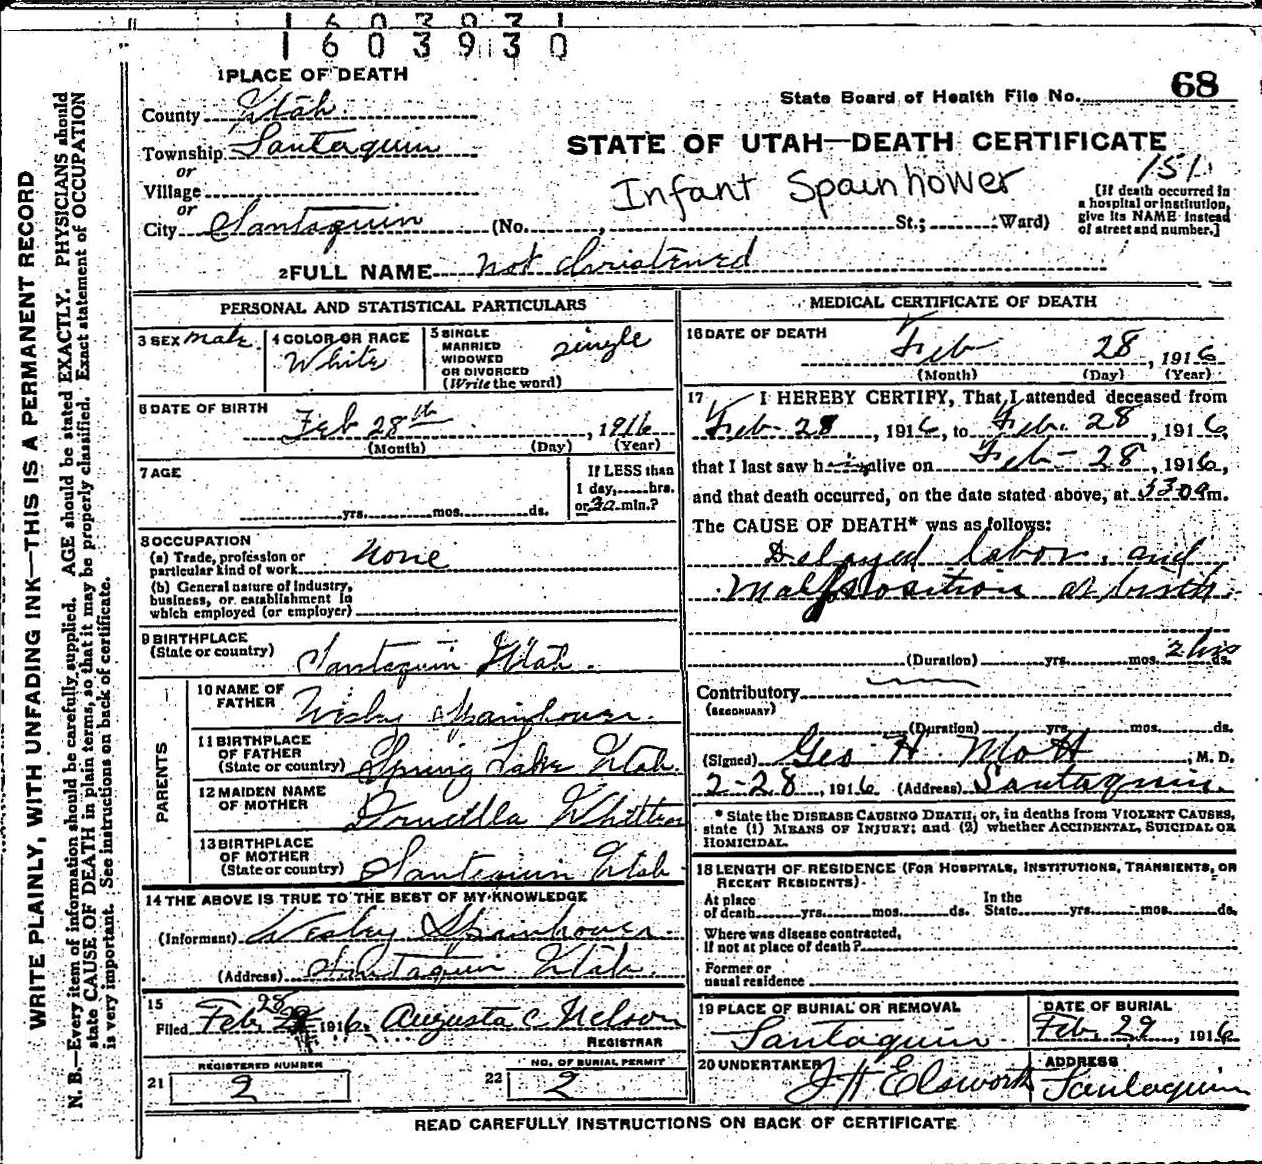 1603930
1 PLACE OF DEATH
County Utah
Township Santaquin
or
Village
or
City Santaquin (No. , St.; Ward)
State Board of Health File No. 68
STATE OF UTAH—DEATH CERTIFICATE
151
Infant Spainhower
[If death occurred in
a hospital or institution,
give its NAME instead
of street and number.]
2 FULL NAME not christened
WRITE PLAINLY, WITH UNFADING INK—THIS IS A PERMANENT RECORD
N. B.—Every item of information should be carefully supplied. AGE should be stated EXACTLY. PHYSICIANS should
state CAUSE OF DEATH in plain terms, so that it may be properly classified. Exact statement of OCCUPATION
is very important. See instructions on back of certificate.
PERSONAL AND STATISTICAL PARTICULARS
3 SEX male
4 COLOR OR RACE
White
5 SINGLE
MARRIED
WIDOWED
OR DIVORCED
(Write the word)
single
6 DATE OF BIRTH
Feb 28th, 1916
(Month) (Day) (Year)
7 AGE
yrs. mos. ds.
If LESS than
1 day, hrs.
or 30 min.?
8 OCCUPATION
(a) Trade, profession or
particular kind of work None
(b) General nature of industry,
business, or establishment in
which employed (or employer)
9 BIRTHPLACE
(State or country) Santaquin Utah.
PARENTS
10 NAME OF
FATHER Wesley Spainhower.
11 BIRTHPLACE
OF FATHER
(State or country) Spring Lake Utah.
12 MAIDEN NAME
OF MOTHER Drucilla
13 BIRTHPLACE
OF MOTHER
(State or country) Santaquin Utah
14 THE ABOVE IS TRUE TO THE BEST OF MY KNOWLEDGE
(Informant) Wesley Spainhower
(Address) Santaquin Utah.
15
Filed Feb 28 1916. Augusta C Nelson
REGISTRAR
21 REGISTERED NUMBER
2
22 NO. OF BURIAL PERMIT
2
MEDICAL CERTIFICATE OF DEATH
16 DATE OF DEATH
Feb 28, 1916
(Month) (Day) (Year)
17 I HEREBY CERTIFY, That I attended deceased from
Feb- 28, 1916, to Feb. 28, 1916,
that I last saw him alive on Feb- 28, 1916,
and that death occurred, on the date stated above, at 530 a m.
The CAUSE OF DEATH* was as follows:
Delayed labor, and
Malposition at birth.
(Duration) yrs. mos. 2 hrs ds.
Contributory
(SECONDARY)
(Duration) yrs. mos. ds.
(Signed) Geo H Mott, M. D.
2-28, 1916 (Address) Santaquin.
* State the DISEASE CAUSING DEATH, or, in deaths from VIOLENT CAUSES,
state (1) MEANS OF INJURY; and (2) whether ACCIDENTAL, SUICIDAL OR
HOMICIDAL.
18 LENGTH OF RESIDENCE (FOR HOSPITALS, INSTITUTIONS, TRANSIENTS, OR
RECENT RESIDENTS).
At place
of death yrs. mos. ds.
In the
State yrs. mos. ds.
Where was disease contracted,
if not at place of death?
Former or
usual residence
19 PLACE OF BURIAL OR REMOVAL
Santaquin.
DATE OF BURIAL
Feb. 29, 1916
20 UNDERTAKER
J H Elsworth
ADDRESS
Santaquin
READ CAREFULLY INSTRUCTIONS ON BACK OF CERTIFICATE